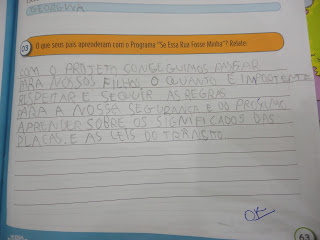 GEORGINA
03 O que seus pais aprenderam com o Programa "Se Essa Rua Fosse Minha"? Relate:
COM O PROJETO CONSEGUIMOS PASSAR
PARA NOSSOS FILHOS O QUANTO É IMPORTANTE
RESPEITAR E SEGUIR AS REGRAS
PARA A NOSSA SEGURANÇA E DO PRÓXIMO
APRENDER SOBRE OS SIGNIFICADOS DAS
PLACAS, E AS LEIS DO TRÂNSITO
OK
63